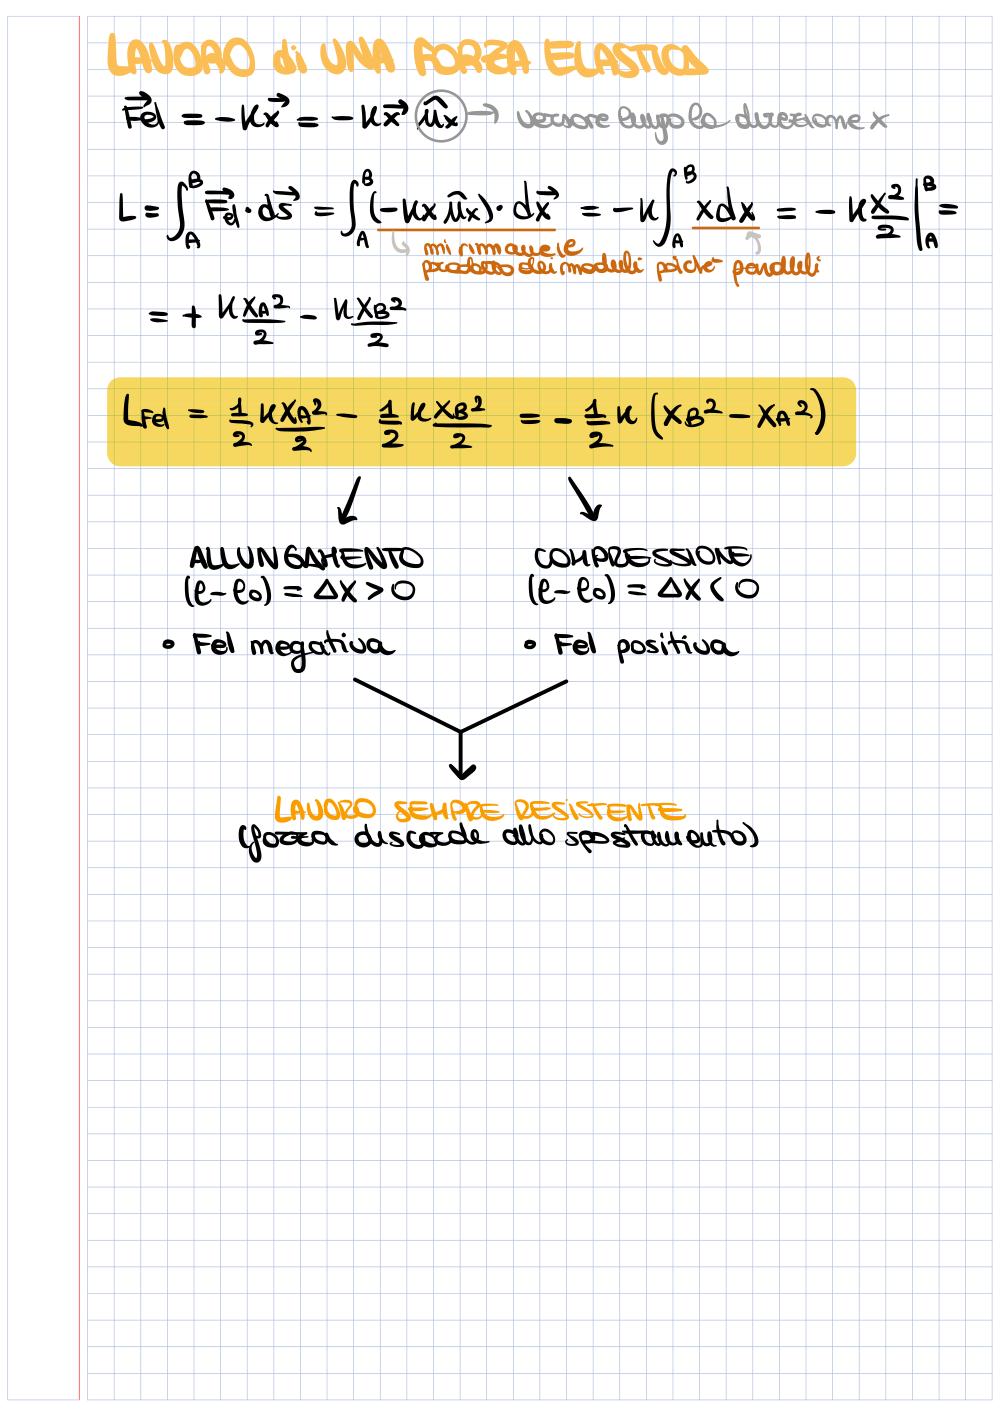 LAVORO di UNA FORZA ELASTICA
F⃗el = -Kx⃗ = -Kx⃗ û_x → versore lungo la direzione x
L = ∫_A^B F⃗el · ds⃗ = ∫_A^B (-Kx û_x) · dx⃗ = -K ∫_A^B xdx = - K x²/2 |_A^B =
mi rimane il
prodotto dei moduli poiché paralleli
= + K x_A²/2 - K x_B²/2
L_Fel = 1/2 K x_A²/2 - 1/2 K x_B²/2 = - 1/2 K (x_B² - x_A²)
ALLUNGAMENTO COMPRESSIONE
(l-l₀) = Δx > 0 (l-l₀) = Δx < 0
• Fel negativa • Fel positiva
LAVORO SEMPRE RESISTENTE
(forza discorde allo spostamento)